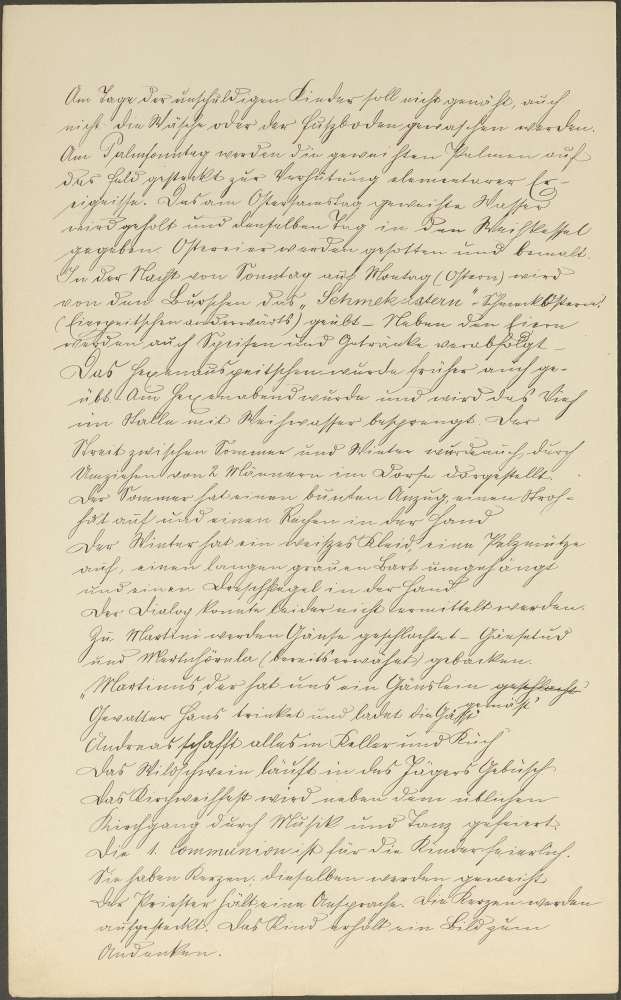 Am Tage der unschuldigen Kinder soll nicht genäht, auch
nicht die Wäsche oder der Fußboden gewaschen werden.
Am Palmsonntag werden die geweihten Palmen auf
das Feld gesteckt zur Verhütung elementarer Er-
eignisse. Das am Ostersamstag geweihte Wasser
wird geholt und denselben Tag in den Weihkessel
gegeben. Ostereier werden gesotten und bemalt.
In der Nacht von Sonntag auf Montag (Ostern) wird
von den Burschen das „Schmekostern" - Schmeckostern"
(Eierpeitschen anderwärts) geübt - Neben den Eiern
werden auch Speisen und Getränke verabfolgt -
Das Hexenauspeitschen wurde früher auch ge-
übt. Am Hexenabend wurde und wird das Vieh
im Stalle mit Weihwasser besprengt. Der
Streit zwischen Sommer und Winter wurde auch durch
Umziehen von 2 Männern im Dorfe dargestellt.
Der Sommer hat einen bunten Anzug, einen Stroh-
hut auf und einen Rechen in der Hand
Der Winter hat ein weißes Kleid, eine Pelzmütze
auf, einen langen grauen Bart umgehängt
und einen Dreschflegel in der Hand
Der Dialog konnte leider nicht ermittelt werden.
Zu Martini werden Gänse geschlachtet -
und (bereits erwähnt) gebacken.
„Martinus der hat uns ein Gänslein geschlacht
gemäst"
Gevatter Hans trinket und ladet die Gäst"
Andreas schafft alles in Keller und Küch
Das Wildschwein läuft in des Jägers Gebüsch
Das Kirchweihfest wird neben dem üblichen
Kirchgang durch Musik und Tanz gefeiert.
Die 1. Communion ist für die Kinder feierlich.
Sie haben Kerzen, dieselben werden geweiht
Der Priester hält eine Ansprache. Die Kerzen werden
aufgesteckt. Das Kind erhält ein Bild zum
Andenken.